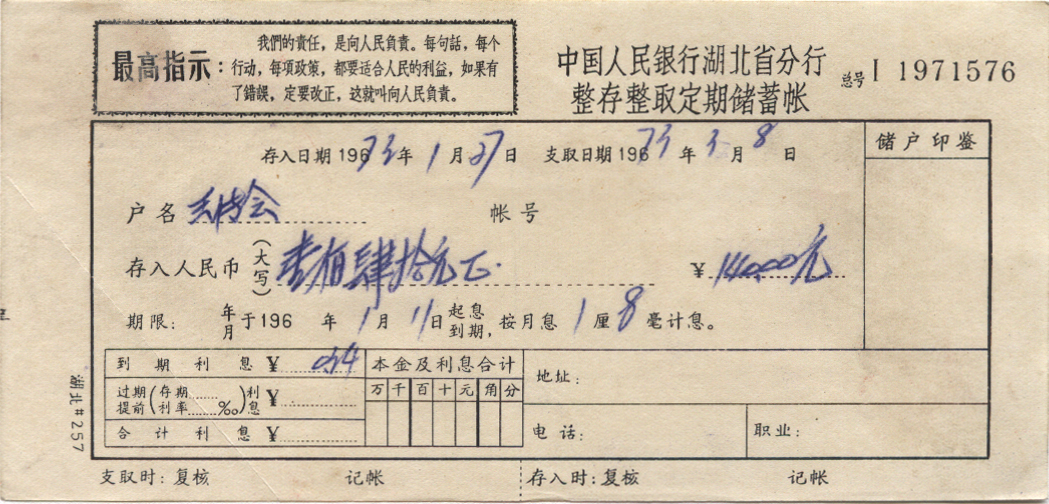 最高指示:
我們的責任,是向人民負責。每句話,每个
行动,每項政策,都要适合人民的利益,如果有
了錯誤,定要改正,这就叫向人民負責。
中国人民银行湖北省分行
整存整取定期储蓄帐
总号 I 1971576
存入日期 196 73年 1月 27日 支取日期 196 73年 3月 8日
储户印鉴
户名 帐号
存入人民币(大写) 壹佰肆拾元正. ¥ 140.00元
期限: 年月 于196 年 1月 11日 起息到期,按月息 1厘 8毫计息。
到期利息 ¥
过期提前(存期......利率......‰)利息 ¥
合计利息 ¥
本金及利息合计
万 千 百 十 元 角 分
地址:
电话: 职业:
湖北#257
支取时:复核 记帐 存入时:复核 记帐